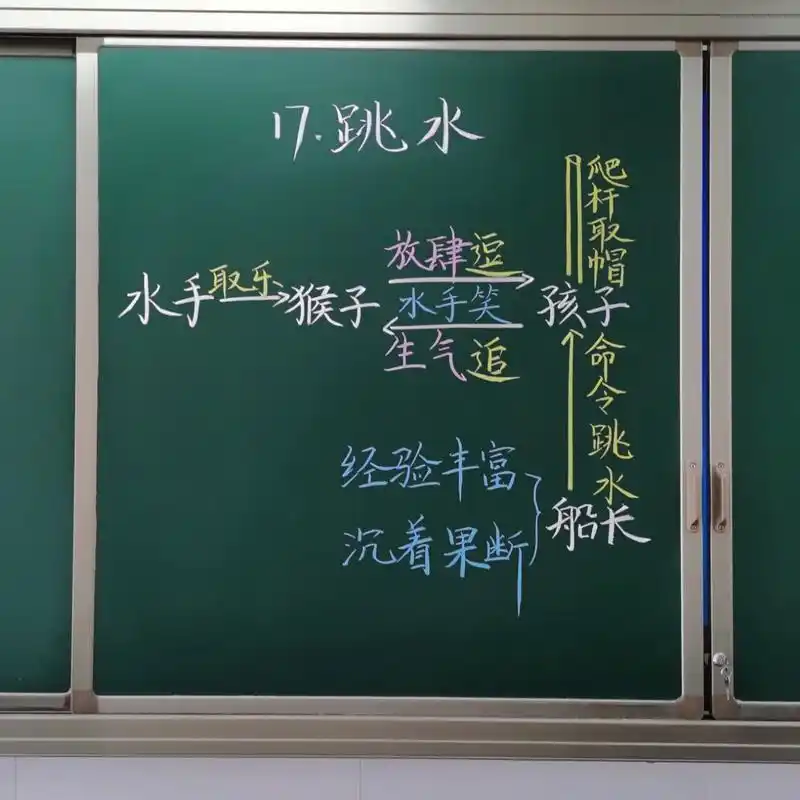 17.跳水
爬杆取帽
放肆逗
水手 取乐 猴子 水手笑 孩子
生气追
命令跳水
经验丰富
沉着果断
船长